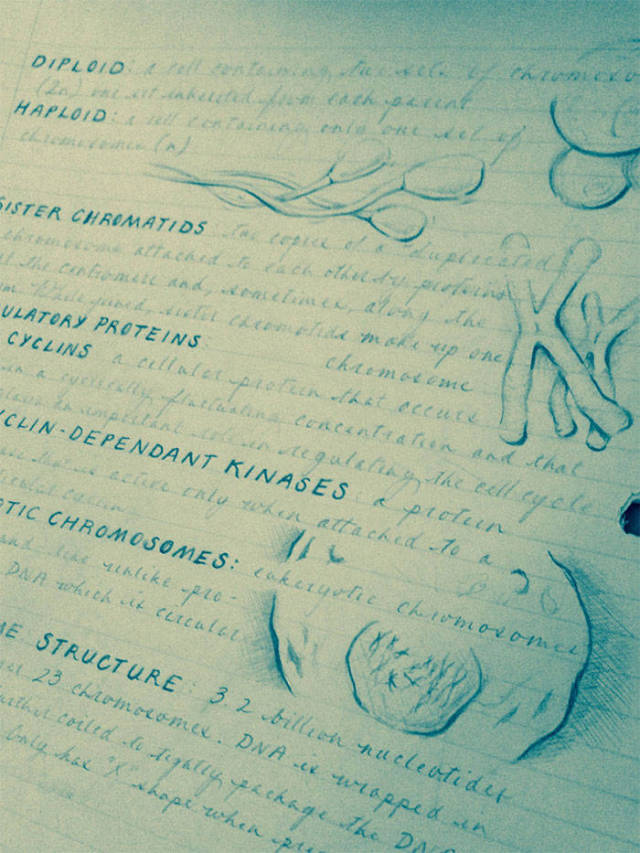 DIPLOID: a cell containing two sets of chromoso
(2n) one set inherited from each parent
HAPLOID: a cell containing only one set of
chromosomes (n)
SISTER CHROMATIDS: two copies of a duplicated
chromosome attached to each other by proteins
at the centromere and, sometimes, along the
While joined, sister chromatids make up one
chromosome
ULATORY PROTEINS:
CYCLINS a cellular protein that occurs
in a cyclically fluctuating concentration and that
plays an important role in regulating the cell cycle
YCLIN-DEPENDANT KINASES: a protein
that is active only when attached to a
particular cyclin
OTIC CHROMOSOMES: eukaryotic chromosomes
and line unlike pro-
DNA which is circular
ME STRUCTURE: 3.2 billion nucleotides
23 chromosomes. DNA is wrapped in
further coiled to tightly package the DNA
Only has "X" shape when